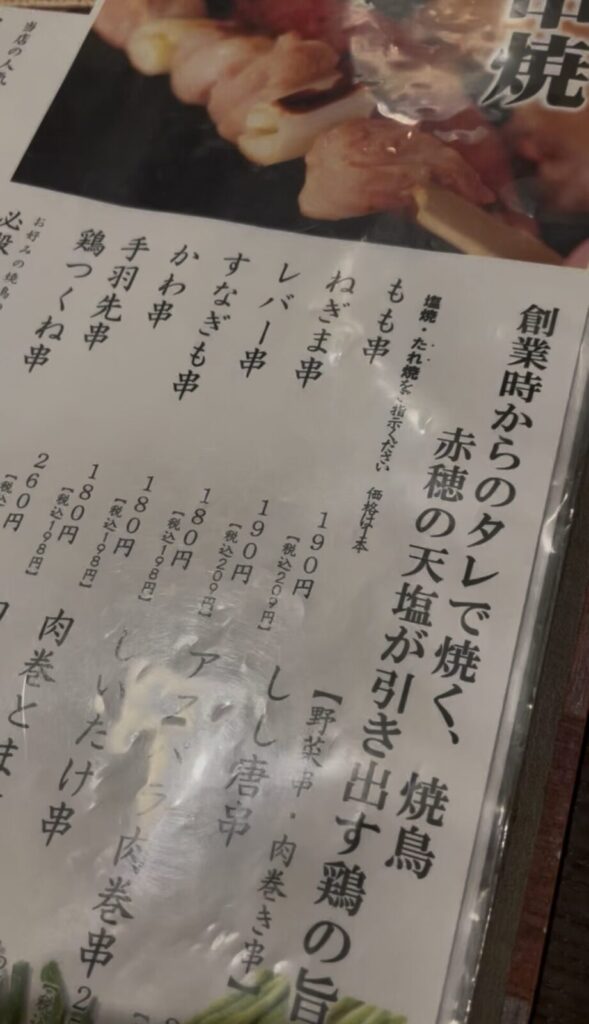 串焼
創業時からのタレで焼く、焼鳥
赤穂の天塩が引き出す鶏の旨
塩焼・たれ焼をご指示ください 価格は1本
もも串 190円
【税込209円】
ねぎま串 190円
【税込209円】
レバー串 180円
【税込198円】
すなぎも串 180円
【税込198円】
かわ串 180円
【税込198円】
手羽先串 260円
鶏つくね串
お好みの焼鳥
当店の人気
【野菜串・肉巻き串】
しし唐串
アスパラ肉巻串
しいたけ串
肉巻とま